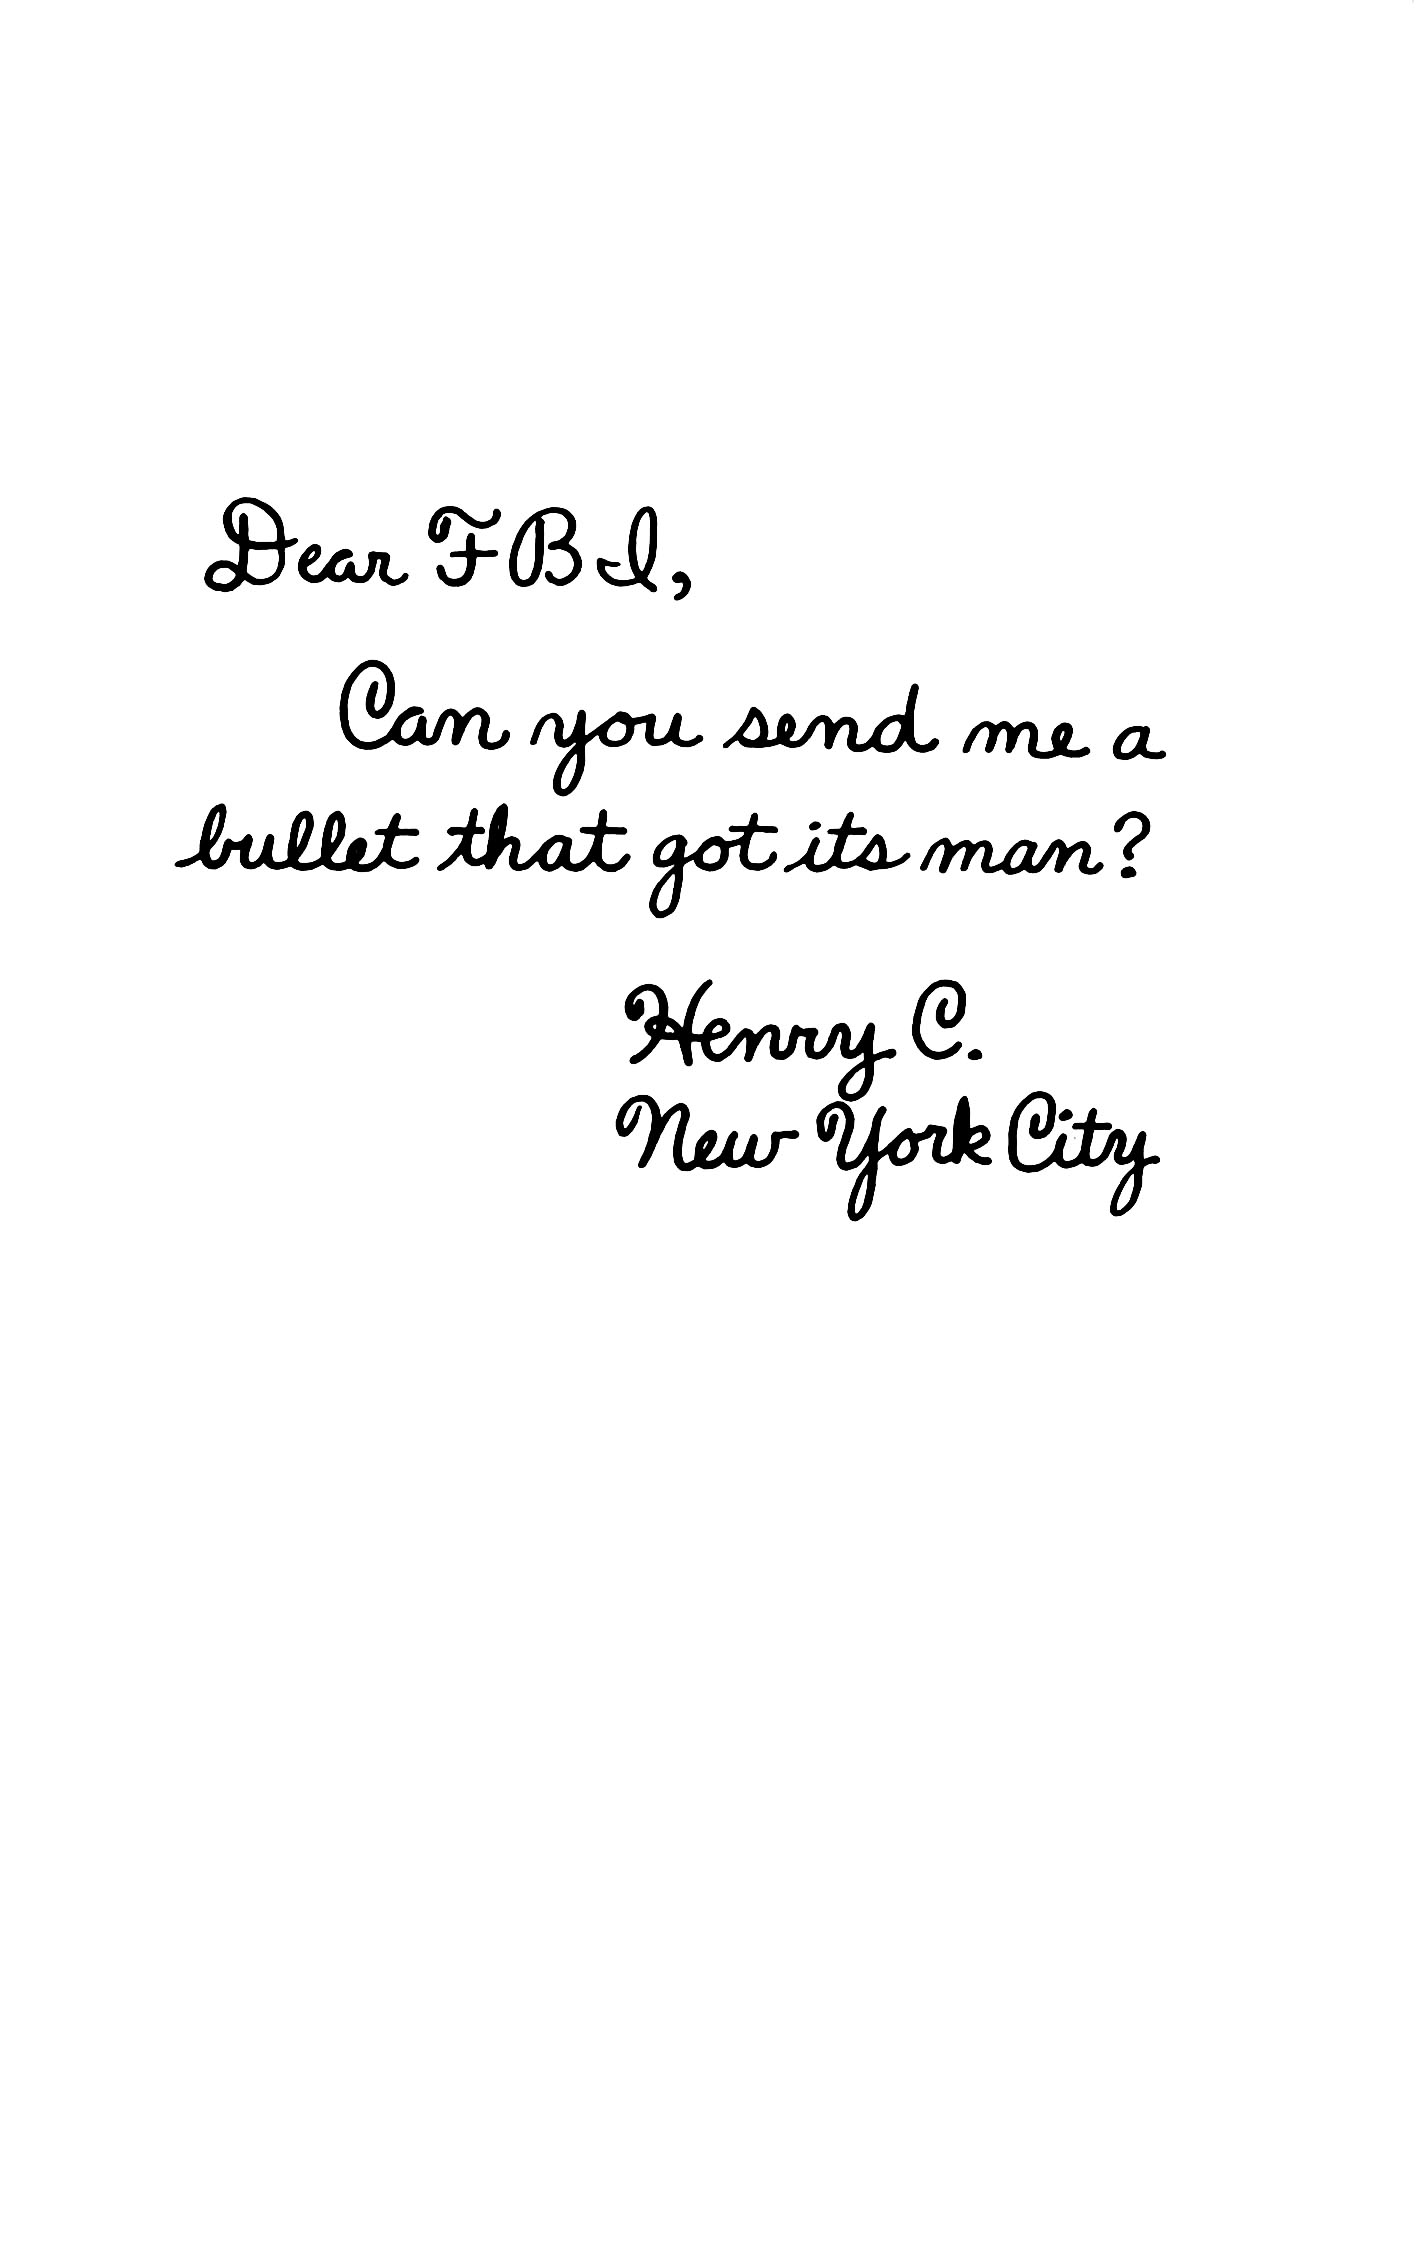 Dear FBI,
Can you send me a
bullet that got its man?
Henry C.
New York City